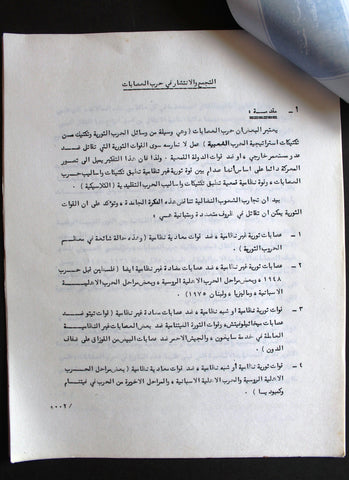 التجمع والانتشار في حرب العصابات
١ ــ مقدمـــة :
يعتبر البعض ان حرب العصابات ( وهي وسيلة من وسائل الحرب الثورية وتكتيك من
تكتيكات استراتيجية الحرب الشعبية ) عمل لا تمارسه سوى القوات الثورية التي تقاتل ضــد
عدو مستعمر خارجي ، او ضد قوات الدولة القمعية . ولذا فان هذا التفكير يصل الى تصور
المعركة دائما على اساس أنها صدام بين قوة ثورية غير نظامية تطبق تكتيكات واساليب حــرب
العصابات ، وقوة نظامية قمعية تطبق تكتيكات واساليب الحرب التقليدية ( الكلاسيكية ) .
بيد ان تجارب الشعوب النضالية تناقض هذه الفكرة الجامدة ، وتؤكد على ان القوات
الثورية يمكن ان تقاتل في ظروف متعددة ومتباينة هي :
١ ــ عصابات ثورية غير نظامية ، ضد قوات معادية نظامية ( وهذه حالة شائعة في معظــم
الحروب الثورية ) .
٢ ــ عصابات ثورية غير نظامية ، ضد عصابات مضادة غير نظامية ايضا ( فلسطين قبل حــرب
١٩٤٨ ، وبعض مراحل الحرب الاهلية الروسية ، وبعض مراحل الحرب الاهليــة
الاسبانية ، وماليزيا ، ولبنان ١٩٧٥ ) .
٣ ــ قوات ثورية نظامية او شبه نظامية ، ضد عصابات مضادة غير نظامية ( قوات تيتو ضــد
عصابات ميخائيلوفيتش ، وقوات الثورة الفيتنامية ضد بعض العصابات غير النظاميــة
العاملة في خدمة سايغون ، والجيش الاحمر ضد عصابات البيض من القوزاق على ضفاف
الدون ) .
٤ ــ قوات ثورية نظامية أو شبه نظامية ، ضد قوات معادية نظامية ( بعض مراحل الحــرب
الاهلية الروسية والحرب الاهلية الاسبانية ، والمراحل الاخيرة من الحرب في فيتنــام
وكمبوديــا ) .
/ ١٠٠٢